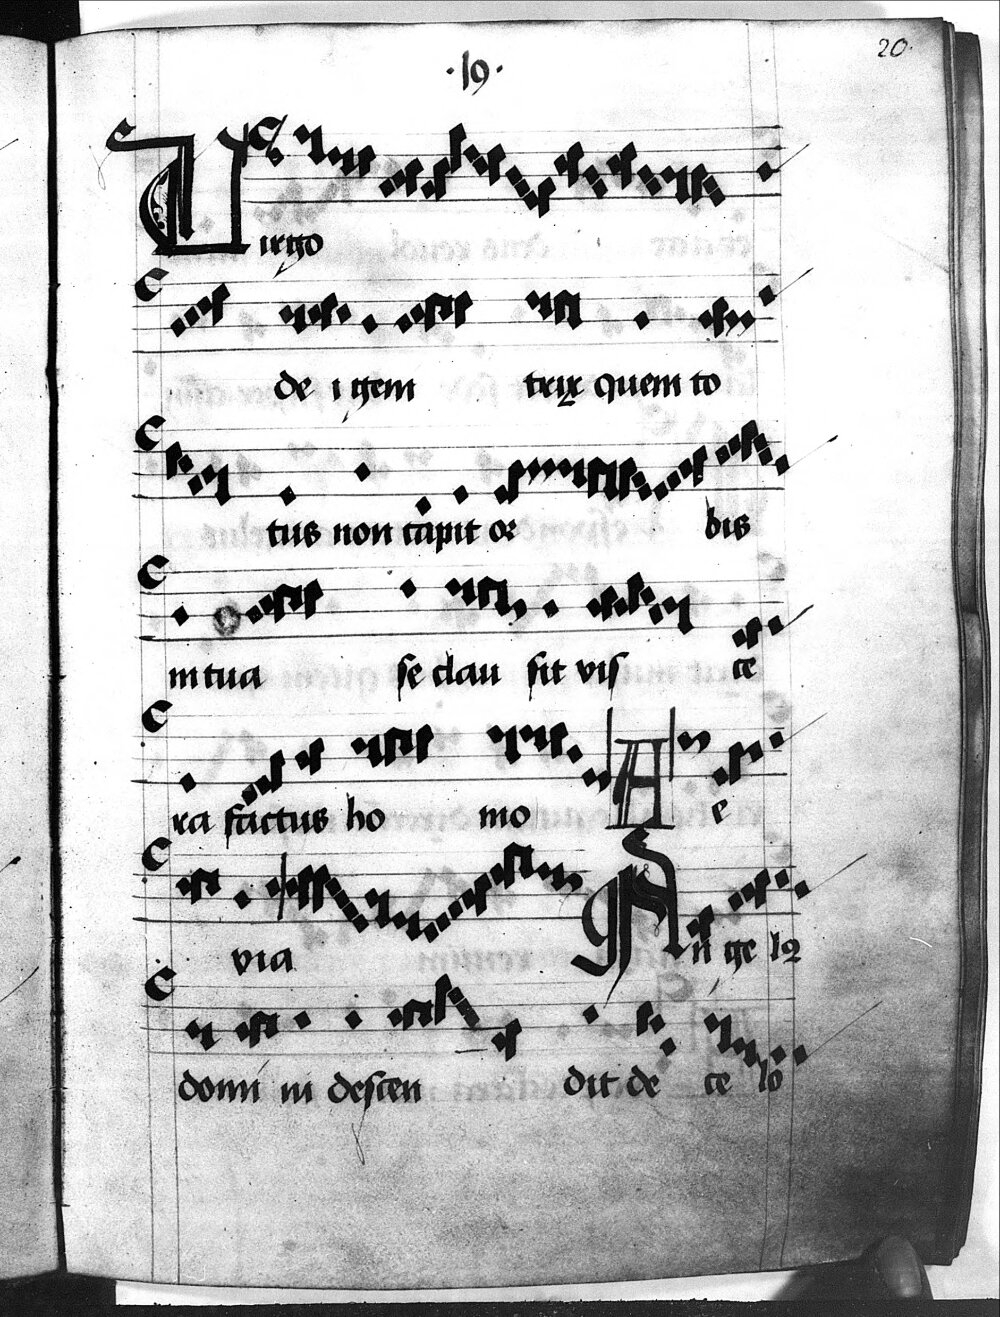 20.
·19·
Virgo
de i gem trix quem to
tus non capit or bis
in tua se clau sit vis ce
ra factus ho mo A e
via An ge lꝰ
domi ni descen dit de ce lo